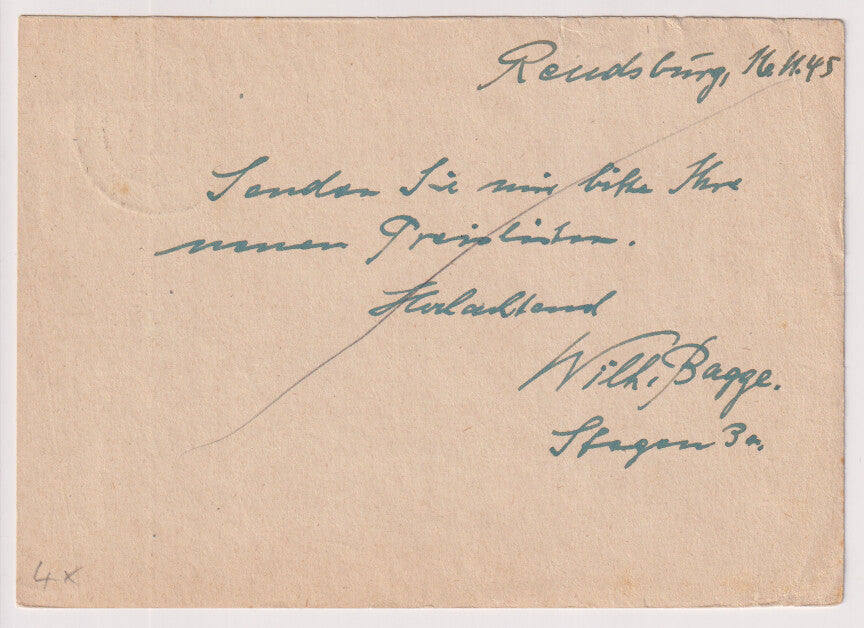 Rendsburg, 16.11.45
Senden Sie mir bitte Ihre
neuen Preislisten.
Hochachtend
Wilh. Bagge.
Stegen 3a.
4x